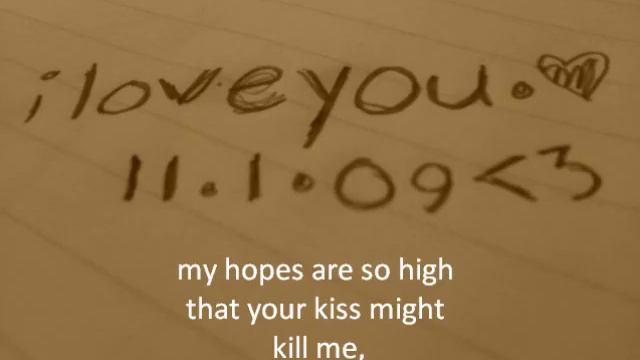 i love you.
11.1.09 <3
my hopes are so high
that your kiss might
kill me,